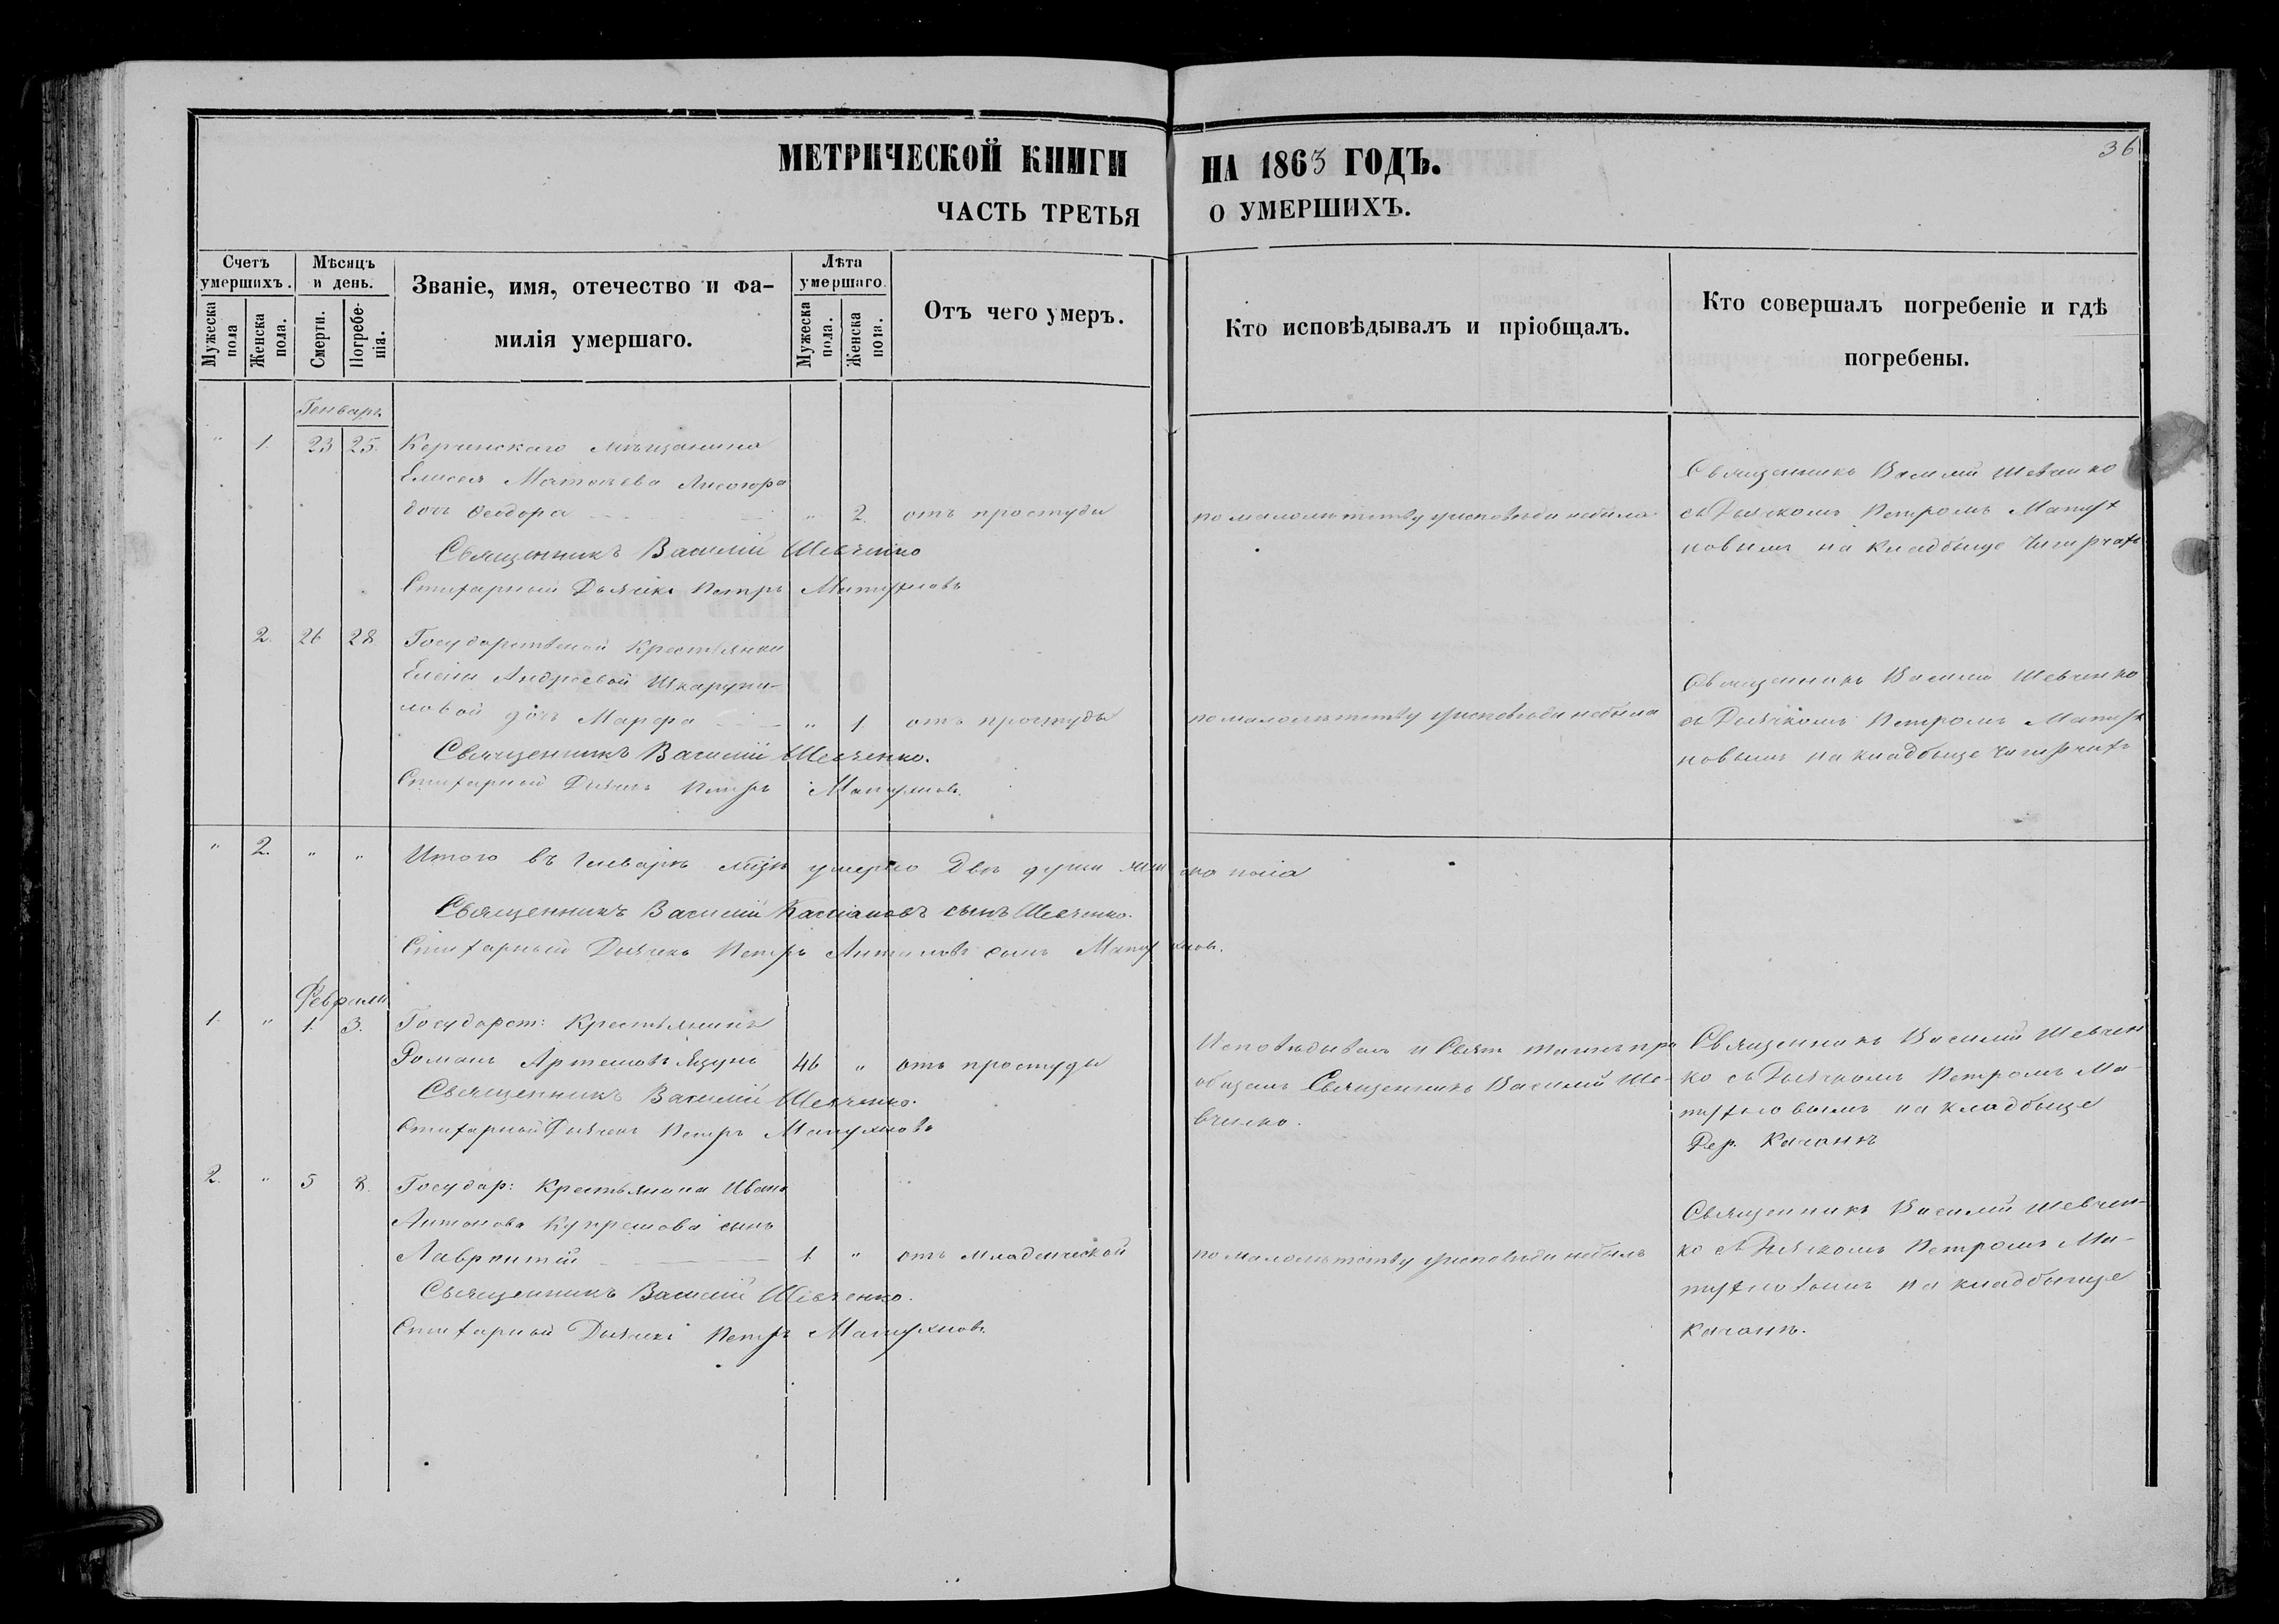 36
МЕТРИЧЕСКОЙ КНИГИ НА 1863 ГОДЪ.
ЧАСТЬ ТРЕТЬЯ О УМЕРШИХЪ.
Счетъ умершихъ.
Мужеска пола
Женска пола.
Мѣсяцъ и день.
Смерти.
Погребенія.
Званіе, имя, отечество и фа-
милія умершаго.
Лѣта умершаго.
Мужеска пола.
Женска пола.
Отъ чего умеръ.
Кто исповѣдывалъ и пріобщалъ.
Кто совершалъ погребеніе и гдѣ
погребены.
Генварь
" 1. 23 25. Керчинскаго мѣщанина
Елисея Матвеева
дочь Феодора " 2. отъ простуды
Священникъ Василій Шевченко
Стихарный Дьячекъ Петръ Матухновъ
по малолѣтству уисповѣди небыла
Священникъ Василій Шевченко
съ Дьячкомъ Петромъ Матух
новымъ на кладбище
2. 26 28 Государственой Крестьянки
Елены Андреевой Шкарупи-
ловой дочь Марфа " 1 отъ простуды
Священникъ Василій Шевченко.
Стихарный Дьячекъ Петръ Матухновъ.
по малолѣтству уисповѣди небыла
Священникъ Василій Шевченко
съ Дьячкомъ Петромъ Матух
новымъ на кладбище
" 2. " " Итого въ Генварѣ мѣзѣ умерло Двѣ души женско пола
Священникъ Василій Касіановъ сынъ Шевченко.
Стихарный Дьячекъ Петръ Антиповъ сынъ Матухновъ.
Февраль
1. " 1. 3. Государст: Крестьянинъ
Романъ Артемовъ 46 " отъ простуды
Священникъ Василій Шевченко.
Стихарный Дьячекъ Петръ Матухновъ
Исповѣдывалъ и Свят. таинъ прі
общалъ Священникъ Василій Ше-
вченко.
Священникъ Василій Шевчен
ко съ Дьячкомъ Петромъ Ма-
тухновымъ на кладбище
Дер. Качанъ
2. " 5 8. Государ: Крестьянина Ивана
Антонова Купрешова сынъ
Лаврентій 1 " отъ младенческой
Священникъ Василій Шевченко.
Стихарный Дьячекъ Петръ Матухновъ.
по малолѣтству уисповѣди небылъ
Священникъ Василій Шевчен-
ко съ Дьячкомъ Петромъ Ма-
тухновымъ на кладбище
Качанъ.